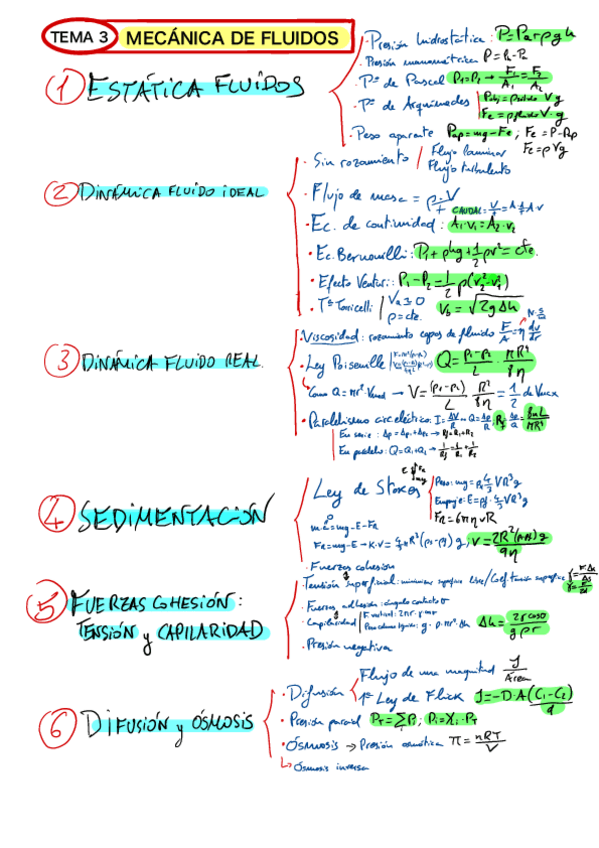 TEMA 3 MECÁNICA DE FLUIDOS
① ESTÁTICA FLUÍDOS
· Presión hidrostática: P=Pa+ρgh
· Presión manométrica P=P₁-P₂
· Pº de Pascal P₁=P₂ → F₁/A₁ = F₂/A₂
· Pº de Arquímedes
Fe = ρfluido V·g
· Peso aparente Pap=mg-Fe; Fe=P-Pap
Fe=ρVg
② DINÁMICA FLUIDO IDEAL
· Sin rozamiento / Flujo laminar
Flujo turbulento
· Flujo de masa = ρ·V/t
CAUDAL: V/t = A·v
· Ec. de continuidad: A₁·v₁=A₂·v₂
· Ec. Bernouilli: P₁+ρhg+1/2ρv²=cte.
· Efecto Venturi: P₁-P₂=1/2ρ(v₂²-v₁²)
· Tª Torricelli Va≃0
ρ=cte. Vb=√2gΔh
③ DINÁMICA FLUIDO REAL.
· Viscosidad: rozamiento capas de fluido F/A=η dv/dr
· Ley Poiseuille Q=P₁-P₂/L · πR⁴/8η
Como Q=πr²·Vmed → V=(P₁-P₂)/L · R²/8η = 1/2 de Vmax
· Paralelismo circ eléctrico: I=ΔV/R Q=ΔP/R; Rf=ΔP/Q=8ηL/πR⁴
En serie: Δp=Δp₁+Δp₂ → Rf=R₁+R₂
En paralelo: Q=Q₁+Q₂ → 1/Rf=1/R₁+1/R₂
④ SEDIMENTACIÓN
Ley de Stokes
Peso: mg=ρs 4/3 πR³g
Empuje: E=ρf·4/3πR³g
FR=6πηvR
m·a=mg-E-FR
FR=mg-E → K·v=4/3πR³(ρs-ρf)g; v=2R²(ρs-ρf)g/9η
⑤ FUERZAS COHESIÓN:
TENSIÓN y CAPILARIDAD
· Fuerzas cohesión
· Tensión superficial: minimizar superficie libre/Coef tensión superficie
· Fuerzas adhesión: ángulo contacto θ
· Capilaridad Δh=2γcosθ/gρr
· Presión negativa
⑥ DIFUSIÓN y ÓSMOSIS
· Difusión
Flujo de una magnitud J/Área
1ª Ley de Flick J=-D·A(C₁-C₂)/d
· Presión parcial PT=ΣPi; Pi=Xi·PT
· ÓSMOSIS → Presión osmótica π=nRT/V
Ósmosis inversa